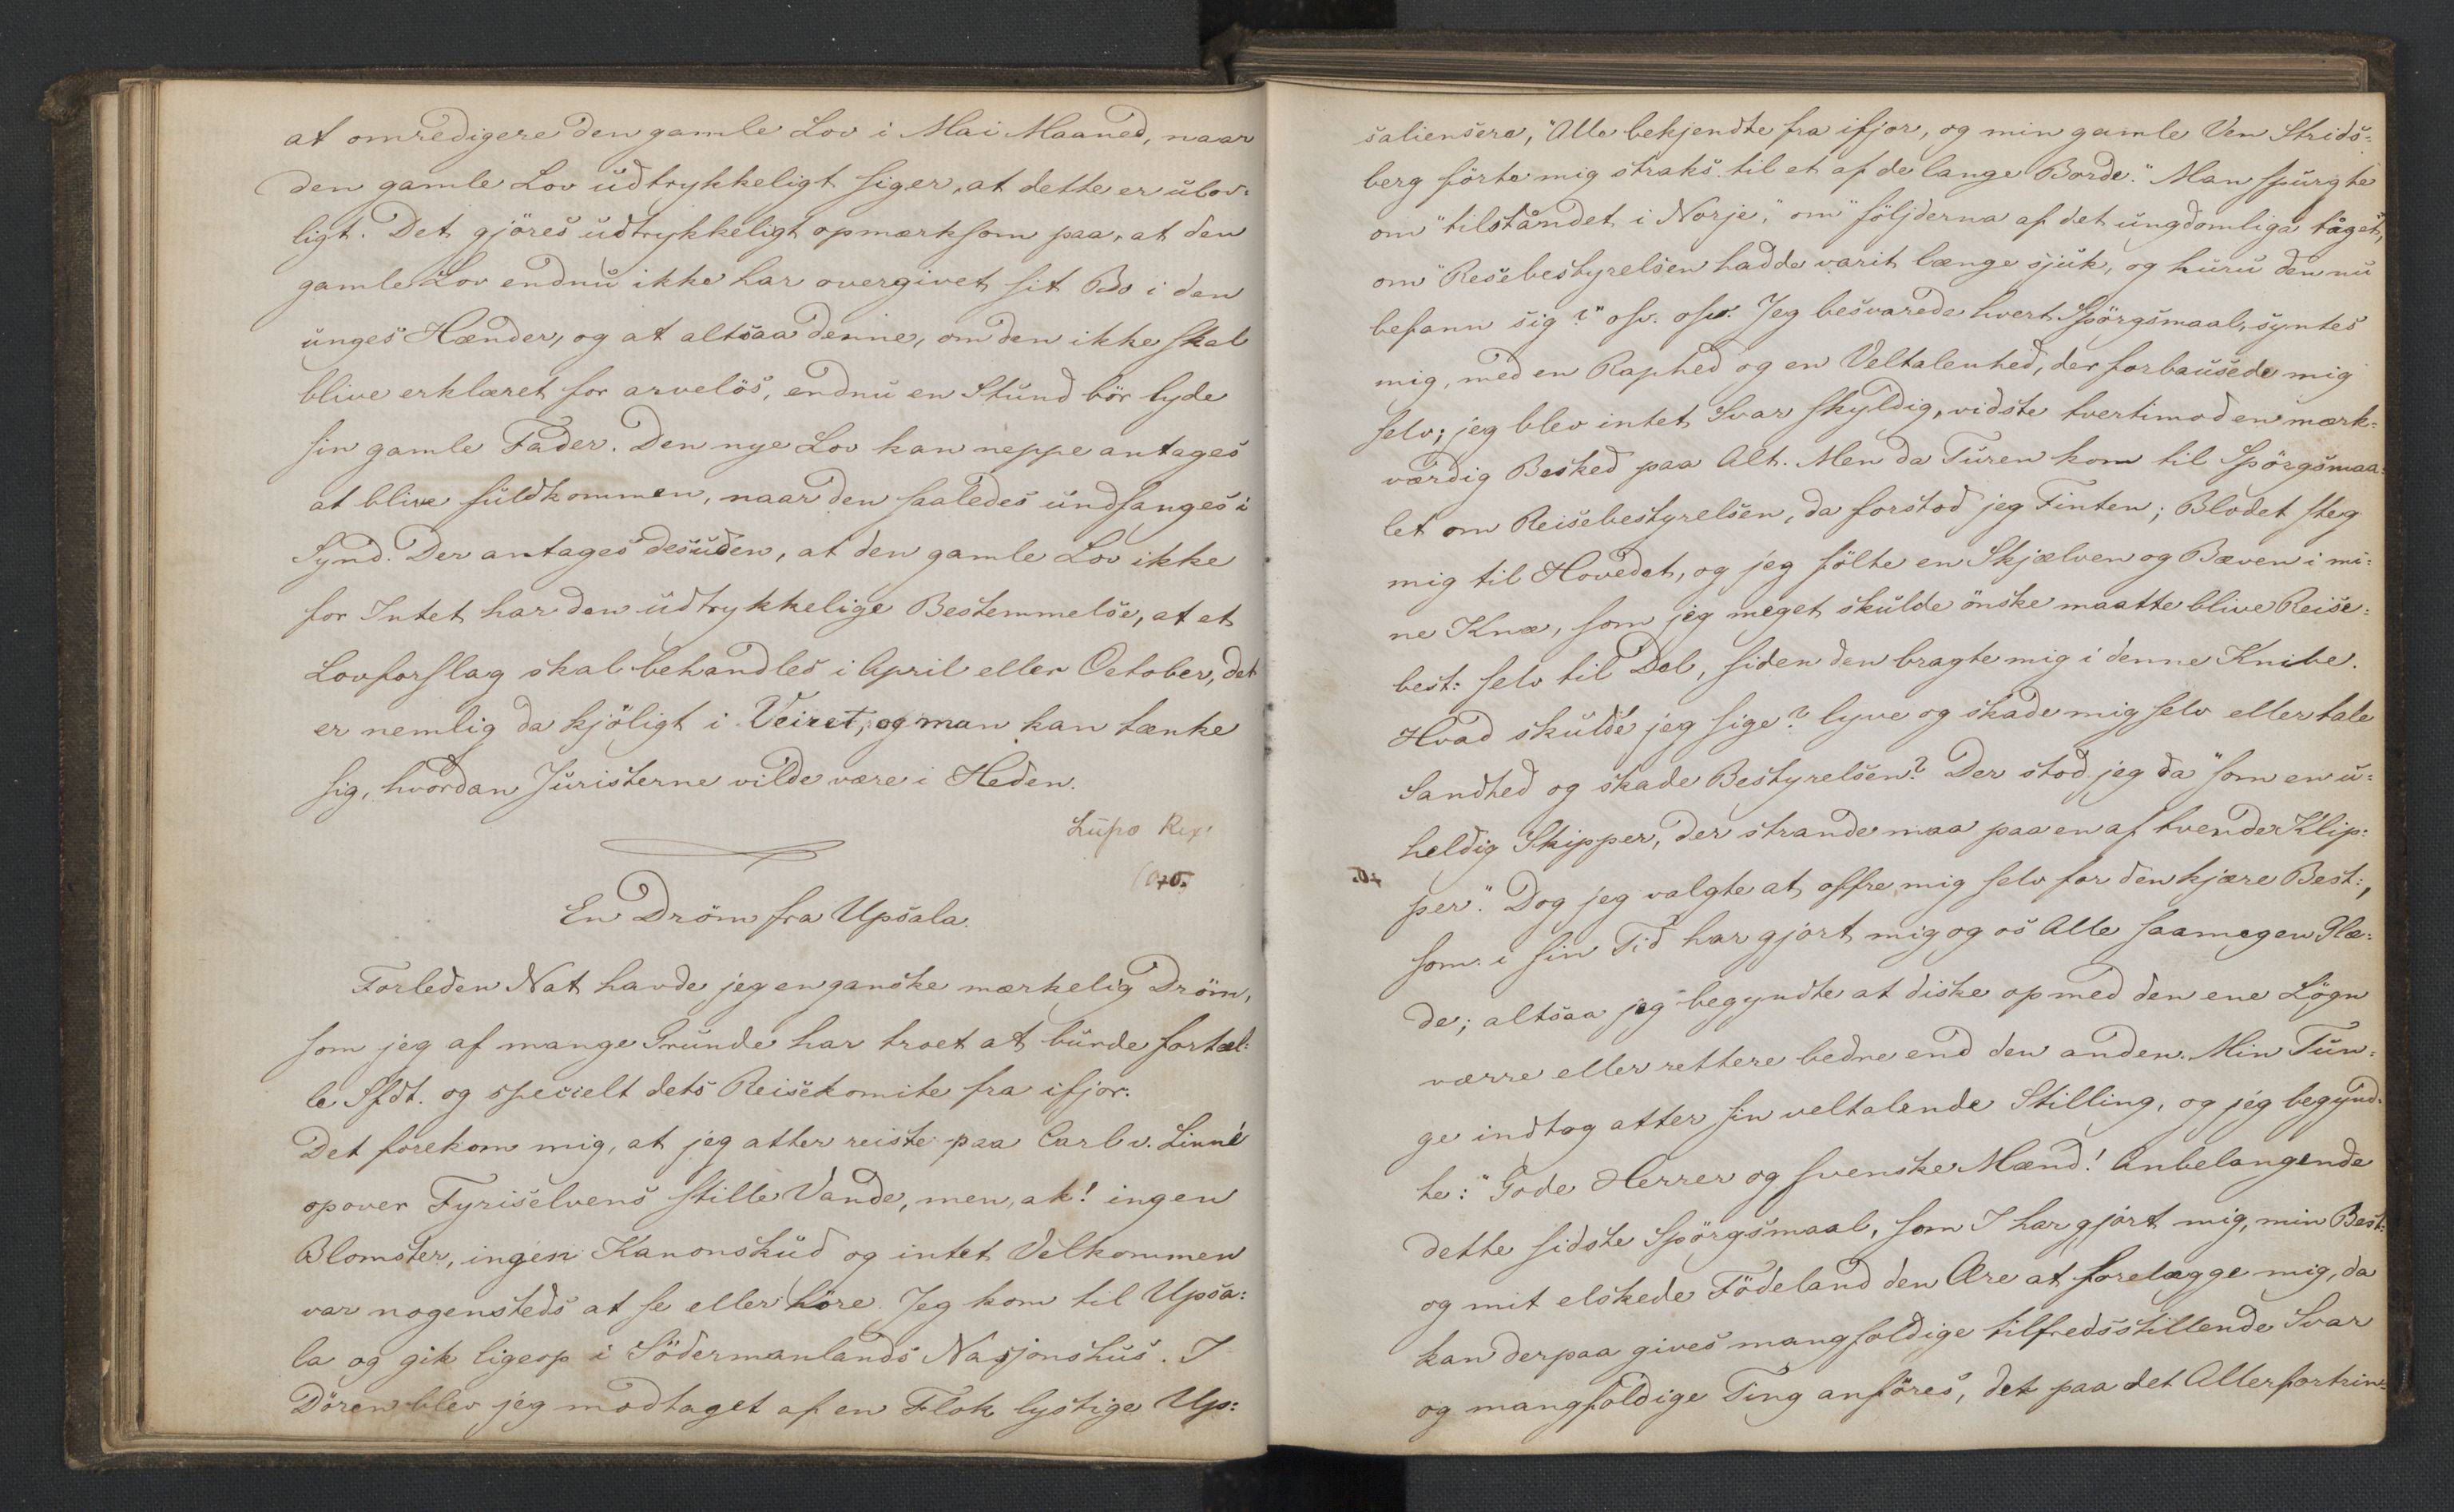 at omredigere den gamle Lov i Mai Maaned, naar
den gamle Lov udtrykkeligt siger, at dette er ulov:
ligt. Det gjöres udtrykkeligt opmærksom paa, at den
gamle Lov endnu ikke har overgivet sit Bo i den
unges Hænder, og at altsaa denne, om den ikke skal
blive erklæret for arvelös, endnu en Stund bör lyde
sin gamle Fader. Den nye Lov kan neppe antages
at blive fuldkommen, naar den saaledes undfanges i
Synd. Der antages desuden, at den gamle Lov ikke
for Intet har den udtrykkelige Bestemmelse, at et
Lovforslag skal behandles i April eller October, det
er nemlig da kjöligt i Veiret, og man kan tænke
sig, hvordan Juristerne vilde være i Heden.
Lupo Rex
En Dröm fra Upsala.
Forleden Nat havde jeg en ganske mærkelig Dröm,
som jeg af mange Grunde har troet at burde fortæl:
le Sfdt. og specielt dets Reisekomite fra ifjor.
Det forekom mig, at jeg atter reiste paa Carl v. Linné
opover Fyriselvens stille Vande, men, ak! ingen
Blomster, ingen Kanonskud og intet Velkommen
var nogensteds at se eller höre. Jeg kom til Upsa:
la og gik ligeop i Södermanlands Nasjonshus. I
Dören blev jeg modtaget af en Flok lystige Up:
saliensere, "Alle bekjendte fra ifjor, og min gamle Ven Strids:
berg förte mig straks til et af de lange Borde." Man spurgte
om "tilståndet i Norje," om "följderna af det ungdomliga tåget,
om "Resebestyrelsen hadde varit længe sjuk, og huru den nu
befann sig?" osv. osv. Jeg besvarede hvert Spörgsmaal, syntes
mig, med en Raphed og en Veltalenhed, der forbausede mig
selv; jeg blev intet Svar skyldig, vidste tvertimod en mærk:
værdig Besked paa Alt. Men da Turen kom til Spörgsmaa:
let om Reisebestyrelsen, da forstod jeg Finten; Blodet steg
mig til Hovedet, og jeg fölte en Skjælven og Bæven i mi:
ne Knæ, som jeg meget skulde önske maatte blive Reise:
best: selv til Del, siden den bragte mig i denne Knibe.
Hvad skulde jeg sige? lyve og skade mig selv eller tale
Sandhed og skade Bestyrelsen? Der stod jeg da "som en u:
heldig Skipper, der strande maa paa en af tvende Klip:
per." Dog jeg valgte at offre mig selv for den kjære Best:,
som i sin Tid har gjort mig og os Alle saamegen Glæ:
de; altsaa jeg begyndte at diske op med den ene Lögn
værre eller rettere bedre end den anden. Min Tun:
ge indtog atter sin veltalende Stilling, og jeg begynd:
te: "Gode Herrer og svenske Mænd! Anbelangende
dette sidste Spörgsmaal, som I har gjort mig, min Best:
og mit elskede Födeland den Ære at forelægge mig, da
kan derpaa gives mangfoldige tilfredsstillende Svar
og mangfoldige Ting anföres, det paa det Allerfortrin: